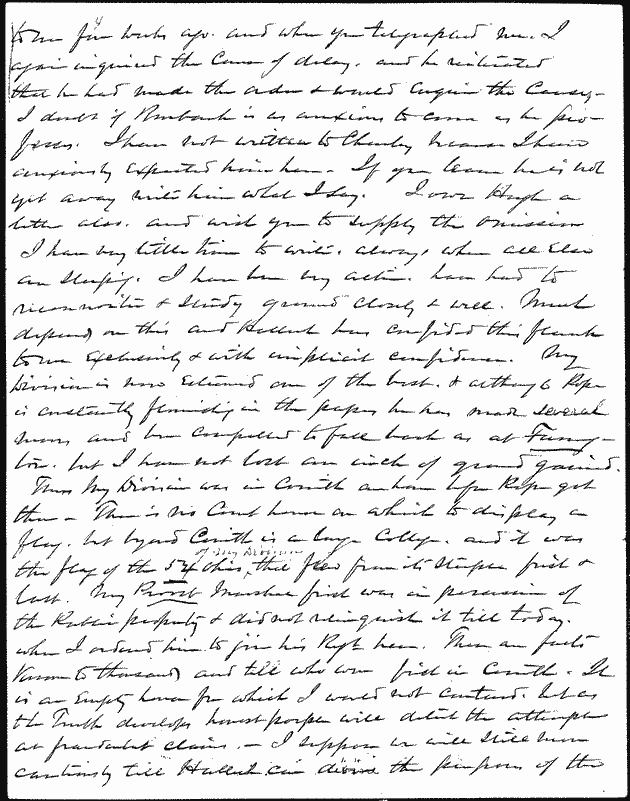 to me four weeks ago. and when you telegraphed me. I
again inquired the cause of delay. and he reiterated
that he had made the order & would enquire the Causes -
I doubt if Burbank is as anxious to come as he pro-
fesses. I have not written to Charley because I have
anxiously expected him here - If you learn he is not
yet away write him what I say. I owe Hugh a
letter also. and wish you to supply the omission
I have very little time to write. always, when all else
are sleeping. I have been very active. have had to
reconnoitre & study ground closely & well. Much
depends on this and Halleck has confided this flank
to me Exclusively & with implicit confidence. My
Division is now Esteemed one of the best. & although Pope
is constantly flourishing in the papers he has made several
moves and been compelled to fall back as at Farming-
ton. but I have not lost an inch of ground gained.
Thus My Division was in Corinth an hour before Pope got
there - There is no Court house on which to display a
flag. but beyond Corinth is a large College. and it was
the flag of the 54 Ohio of my Division that flew from its Steeple first &
last. My Provost Marshal first was in possession of
the Public property & did not relinquish it till today.
when I ordered him to join his Regt here. These are facts
known to thousands and tell who were first in Corinth - It
is an Empty honor for which I would not contend. but as
the Truth develops honest people will detect the attempt
at fraudulent claims. - I suppose we will still move
cautiously till Halleck can divine the purposes of the